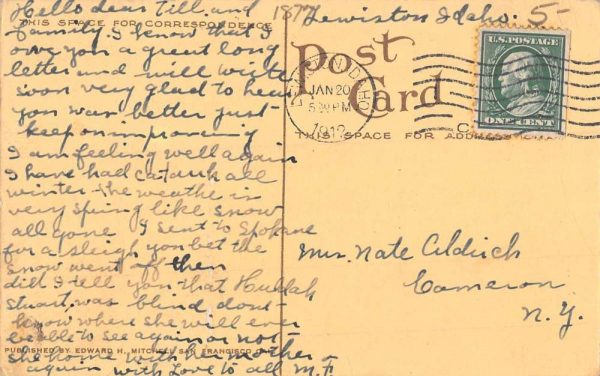 Hello dear Till and
THIS SPACE FOR CORRESPONDENCE
family. I know that I
owe you a great long
letter and will write
soon very glad to hear
you was better just
keep on improving
I am feeling well again
I have had catarrh all
winter the weathe is
very spring like snow
all gone I sent to Spokane
for a sleigh you bet the
snow went off then
did I tell you that Huldah
Stuart, was blind, dont
know where she will ever
be able to see again or not
PUBLISHED BY EDWARD H. MITCHELL SAN FRANCISCO
she home with her mother
again with Love to all M.F
1877
Lewiston Idaho. 5-
Post
Card
LEWISTON, IDAHO
JAN 20
5 PM
1912
U.S. POSTAGE
ONE CENT
THIS SPACE FOR ADDRESS
Mrs. Nate Aldrich
Cameron
N. Y.